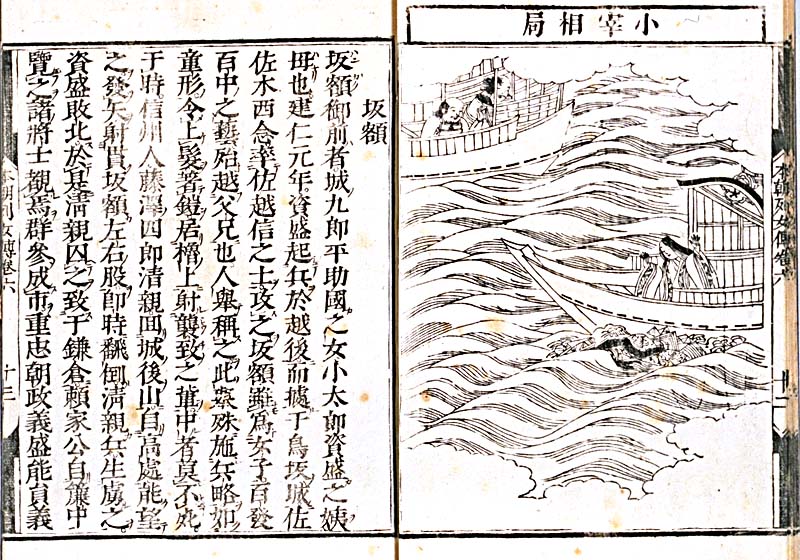 小宰相局
本朝列女傳卷六
十二
坂額
坂額御前者城九郎平助國之女小太郎資盛之姨
母也建仁元年資盛起兵於越後而據于鳥坂城佐
佐木西念率佐越信之士攻之坂額雖爲女子百發
百中之藝殆越父兄也人擧稱之此擧殊施兵略如
童形令上髮著鎧居櫓上射襲致之輩中者莫不死
于時信州人藤澤四郎清親回城後山自高處能望
之發矢射貫坂額左右股即時飜倒清親兵生虜之
資盛敗北於是清親囚之致于鎌倉賴家公自簾中
覽之諸將士都焉群參成市重忠朝政義盛能員義
本朝列女傳卷六
十三